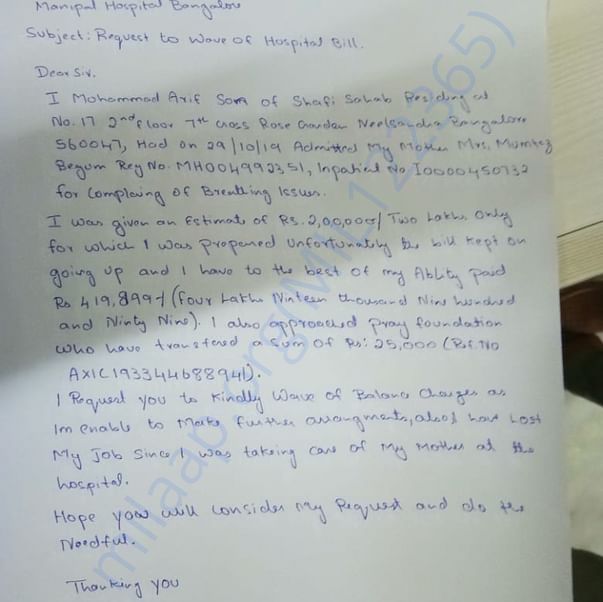 Manipal Hospital Bangalore
Subject: Request to Wave of Hospital Bill.
Dear Sir,
I Mohammad Arif Son of Shafi Sahab Residing at
No. 17 2nd floor 7th Cross Rose Garden Neelsandra Bangalore
560047, Had on 29/10/19 Admitted My Mother Mrs. Mumtaz
Begum Reg No. MH004992351, Inpatient No I0000450732
for Complaing of Breathing Issues.
I was given an Estimate of Rs. 2,00,000/ Two Lakhs Only
for which I was prepared Unfortunately the bill kept on
going up and I have to the best of my Ability paid
Rs 4,19,899/- (Four Lakhs Ninteen thousand Nine hundred
and Ninty Nine). I also approached pray foundation
who have transfered a Sum of Rs: 25,000 (Ref. No
AXIC193344688941).
I Request you to Kindly Wave of Balance Charges as
Im enable to Make further arrangments, also I have Lost
My Job Since I was takeing care of My Mother at the
hospital.
Hope you will consider My Request and do the
Needful.
Thanking you
milaap.org(MIL122365)